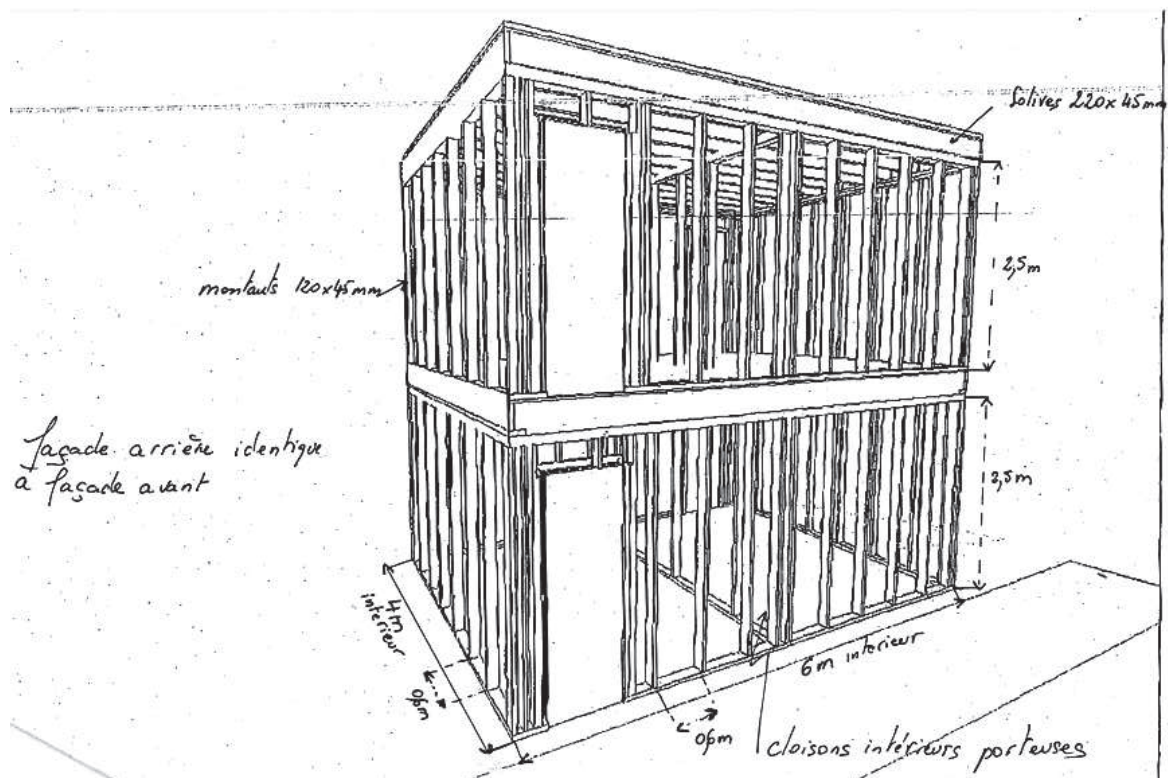 Solives 220x45mm
2,5m
montants 120x45mm
façade arrière identique
a façade avant
2,5m
4m
intérieur
0,6m
6m interieur
0,6m
cloisons intérieurs porteuses